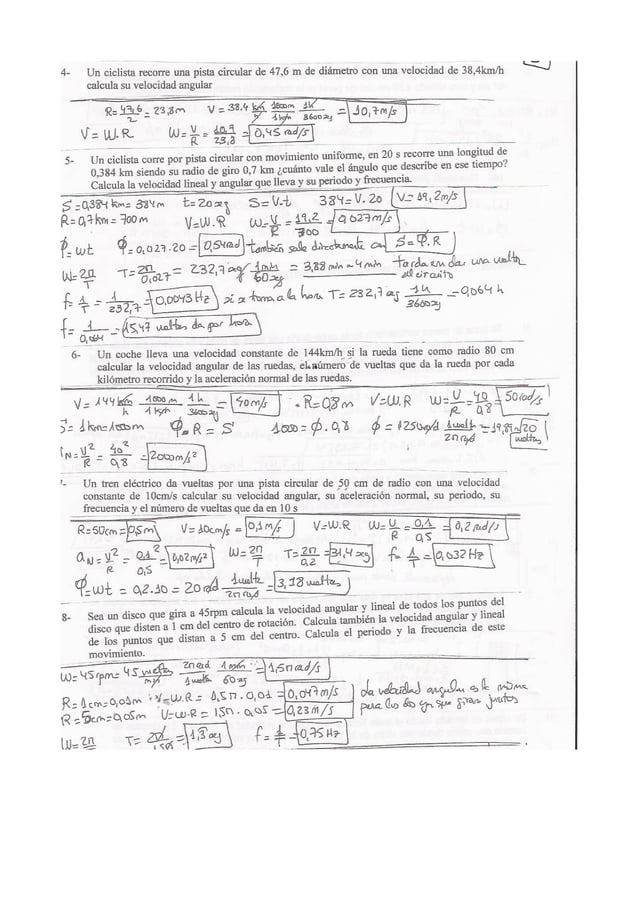 4- Un ciclista recorre una pista circular de 47,6 m de diámetro con una velocidad de 38,4km/h
calcula su velocidad angular
R= 47,6/2 = 23,8m V = 38.4 km/h 1000m/1km 1h/3600sg = 10,7m/s
V = W.R W = V/R = 10.7/23,8 = 0,45 rad/s
5- Un ciclista corre por pista circular con movimiento uniforme, en 20 s recorre una longitud de
0,384 km siendo su radio de giro 0,7 km ¿cuánto vale el ángulo que describe en ese tiempo?
Calcula la velocidad lineal y angular que lleva y su periodo y frecuencia.
S = 0,384 km = 384m t = 20sg S = V.t 384 = V.20 V = 19,2m/s
R = 0,7km = 700m V=W.R W = V/R = 19,2/700 = 0,027m/s
φ = wt φ = 0,027.20 = 0,54rad también sale directamente con S = φ.R
W = 2π/T T = 2π/0,027 = 232,7sg 1min/60sg = 3,88 min ≈ 4 min tarda en dar una vuelta
al circuito
f = 1/T = 1/232,7 = 0,0043 Hz si x toma a la hora T = 232,7 sg 1h/3600sg = 0,064 h
f = 1/0,064 = 15,47 vueltas da por hora
6- Un coche lleva una velocidad constante de 144km/h si la rueda tiene como radio 80 cm
calcular la velocidad angular de las ruedas, el número de vueltas que da la rueda por cada
kilómetro recorrido y la aceleración normal de las ruedas.
V = 144 km/h 1000m/1km 1h/3600sg = 40m/s R = 0,8m V=W.R W = V/R = 40/0,8 = 50rad/s
S = 1km = 1000m φ.R = S 1000 = φ.0,8 φ = 1250rad 1vuelta/2π rad = 19,89 ≈ 20
vueltas
N = V²/R = 40²/0,8 = 2000m/s²
Un tren eléctrico da vueltas por una pista circular de 50 cm de radio con una velocidad
constante de 10cm/s calcular su velocidad angular, su aceleración normal, su periodo, su
frecuencia y el número de vueltas que da en 10 s
R=50cm = 0,5m V=10cm/s = 0,1m/s V=W.R W = V/R = 0,1/0,5 = 0,2 rad/s
aN = V²/R = 0,1²/0,5 = 0,02m/s² W = 2π/T T = 2π/0,2 = 31,4 sg f = 1/T = 0,032 Hz
φ = wt = 0,2.10 = 20 rad 1vuelta/2π rad = 3,18 vueltas
8- Sea un disco que gira a 45rpm calcula la velocidad angular y lineal de todos los puntos del
disco que disten a 1 cm del centro de rotación. Calcula también la velocidad angular y lineal
de los puntos que distan a 5 cm del centro. Calcula el periodo y la frecuencia de este
movimiento.
W = 45rpm = 45 vueltas/min 2π rad/1vuelta 1min/60sg = 1,5π rad/s
R = 1cm = 0,01m V=W.R = 1,5π . 0,01 = 0,047m/s La velocidad angular es la misma
R = 5cm = 0,05m V=W.R = 15π . 0,05 = 0,23 m/s para los dos ya que giran juntos
W = 2π T = 2π/1,5π = 1,3 sg f = 1/T = 0,75 Hz